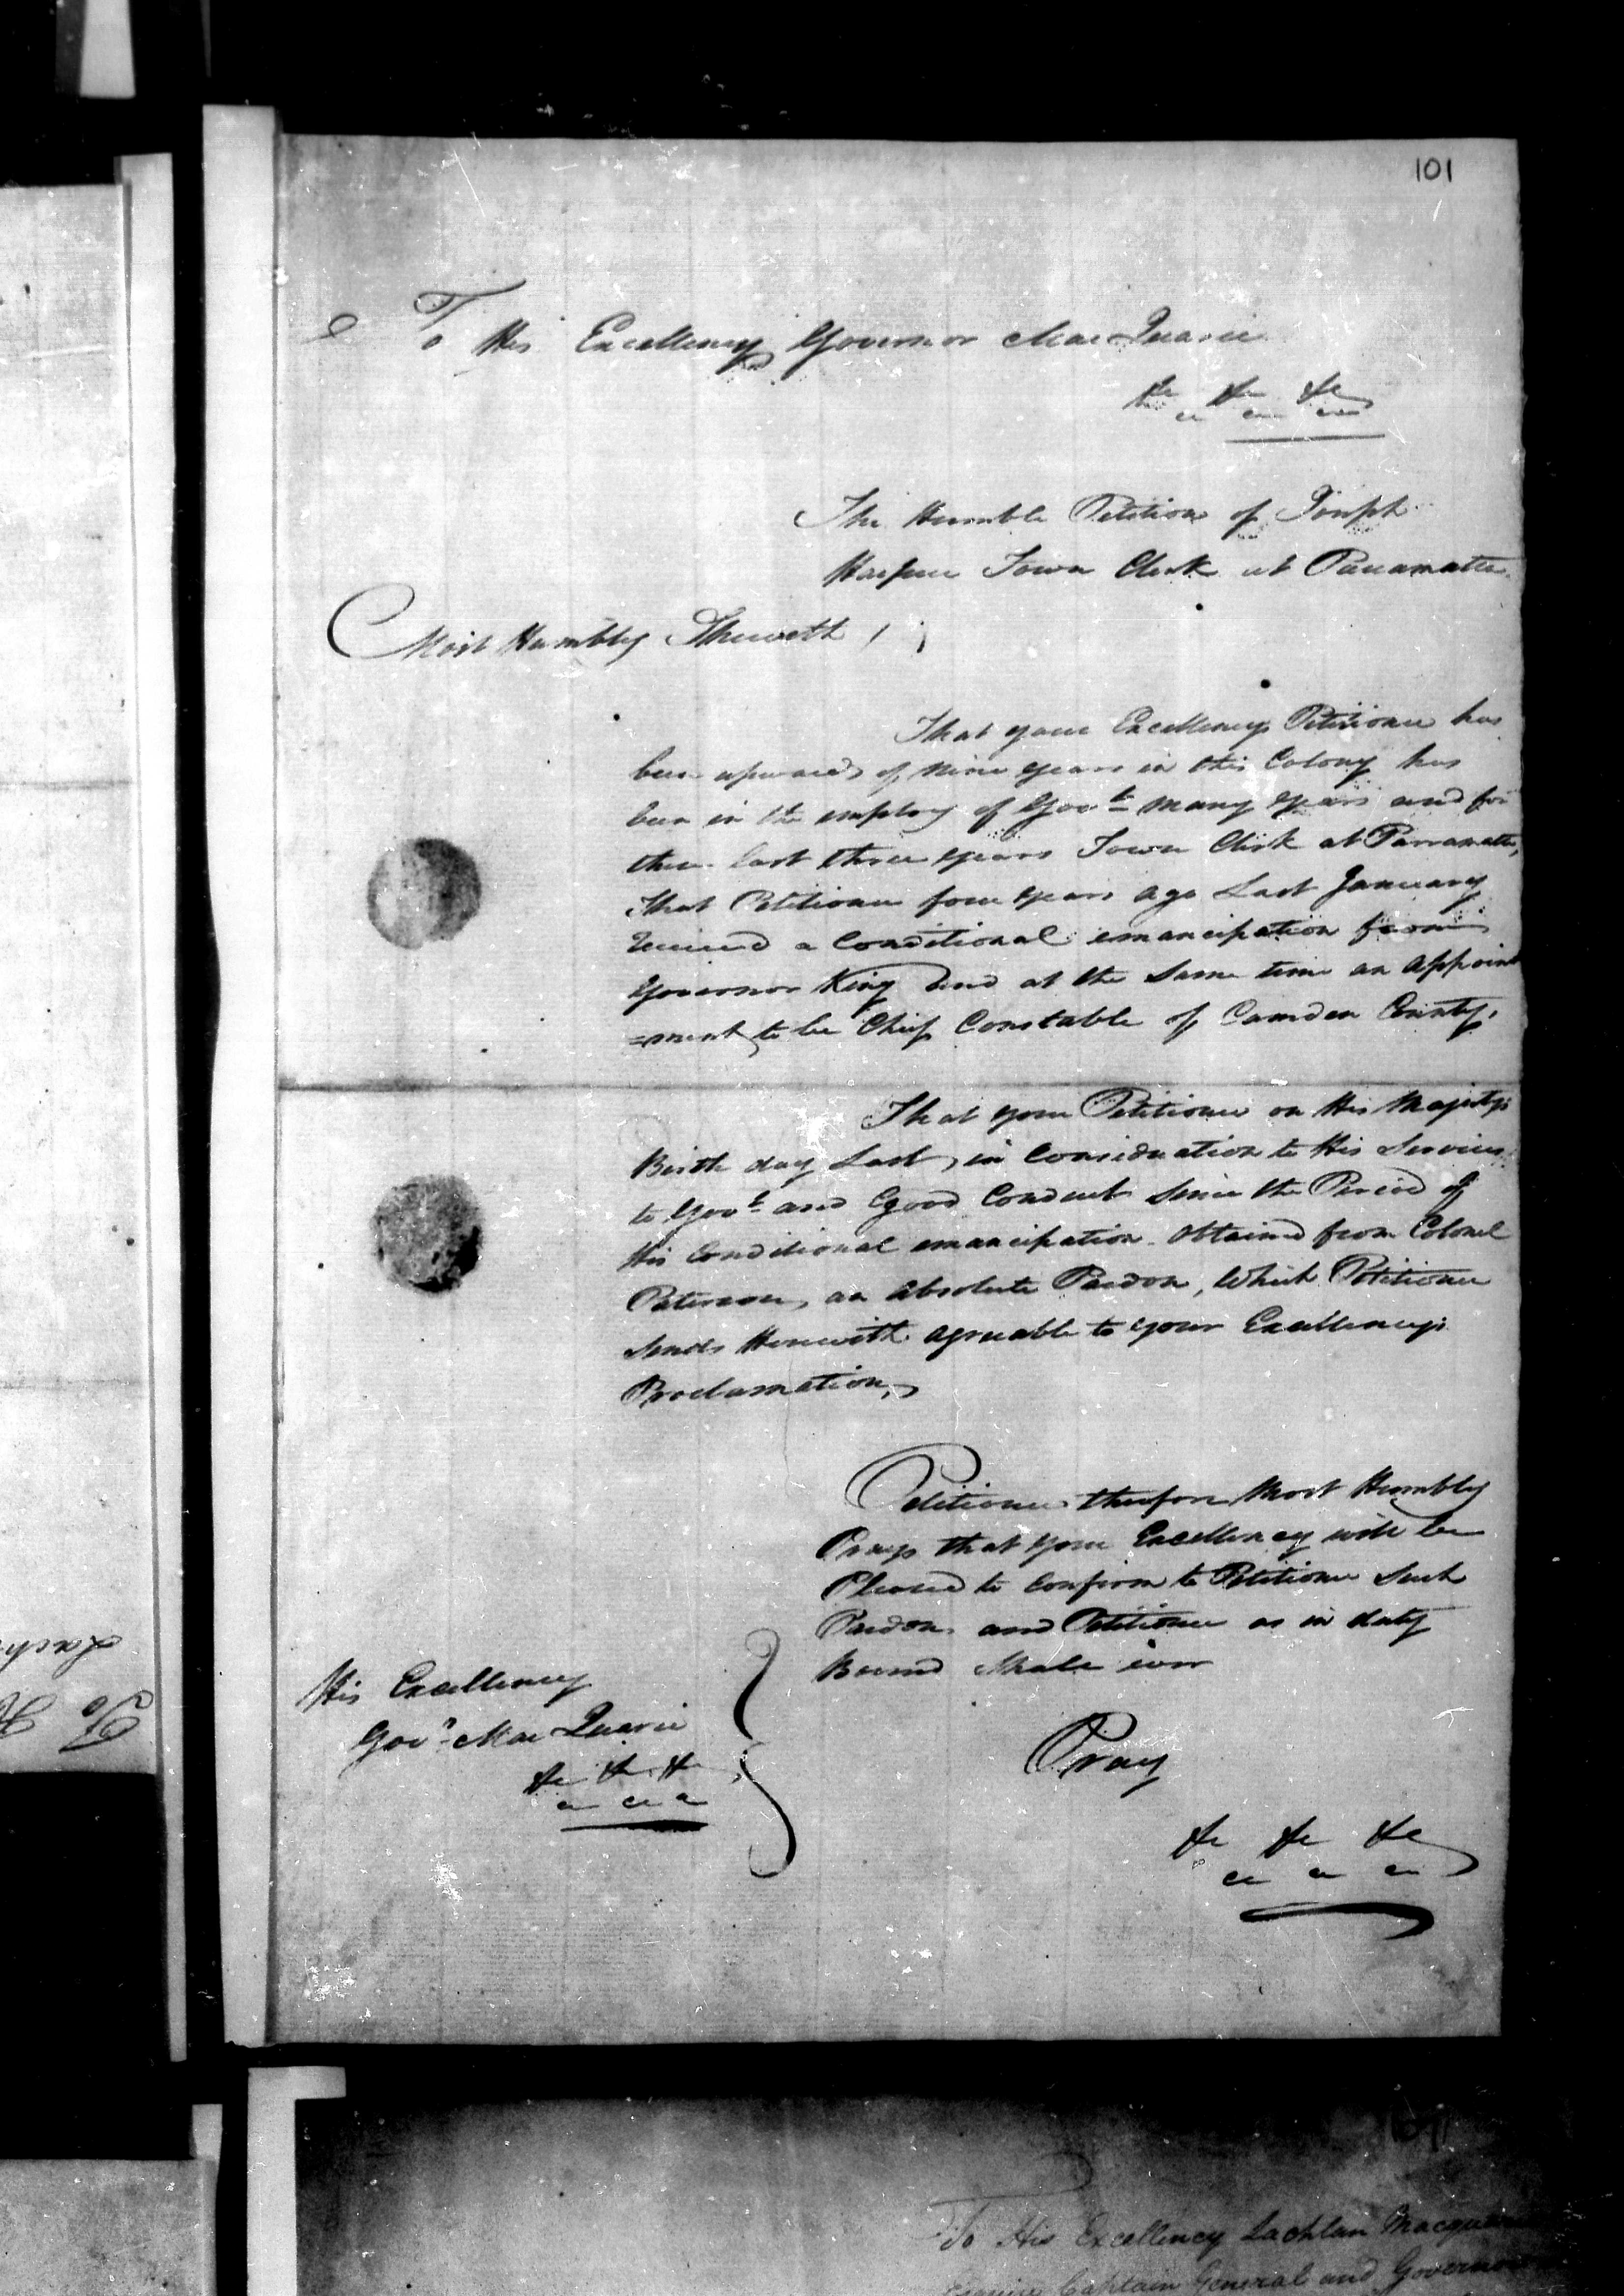 101
To His Excellency Governor MacQuarie
&c &c &c
The Humble Petition of Joseph
Harpur Town Clerk at Paramatta
Most Humbly Sheweth
That your Excellencys Petitioner has
been upwards of nine years in this Colony has
been in the employ of Govt many years and for
these last three years Town Clerk at Parramatta,
That Petitioner four years ago Last January
Received a Conditional emancipation from
Governor King and at the Same time an Appoint
=ment to be Chief Constable of Camden County,
That your Petitioner on His Majestys
Birth day Last, in Consideration to His Services
to Govt and Good Conduct Since the Period of
His Conditional emancipation Obtained from Colonel
Paterson, an Absolute Pardon, Which Petitioner
Sends Herewith Agreeable to your Excellencys
Proclamation,
Petitioner therefore Most Humbly
Prays that your Excellency will be
Pleased to Confirm to Petitioner Such
Pardon and Petitioner as in duty
Bound Shall ever
Pray
&c &c &c
His Excellency
Govr MacQuarie
&c &c &c
To His Excellency Lachlan Macquarie
Esquire Captain General and Governor